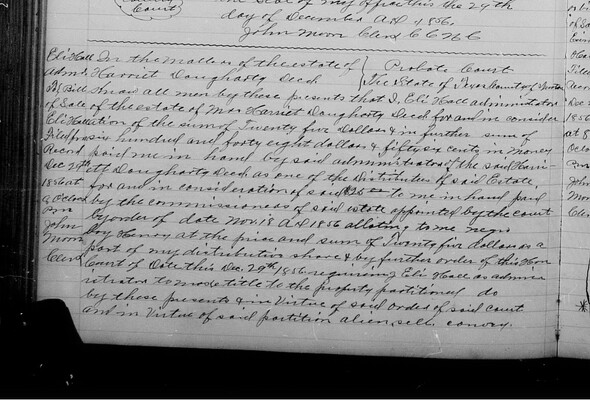 County
Court
the Seal of my office this the 29th
day of December A.D. 1856.
John Moon Clerk C C N C
Eli Hall In the matter of the estate of { Probate Court
Adm. Harriet Daugharty Decd { The State of Texas County of
To } Bill Know all men by these presents that I, Eli Hall administrator
of Sale of the estate of Mrs Harriet Daugharty Decd for and in consider
Eli Hall ation of the sum of Twenty five Dollars & in further sum of
Filed for six hundred and forty eight dollars & fifty six cents in money
Record paid me in hand by said administrator of the said Harri-
Dec 29th ett Daugharty Decd as one of the Distributees of said Estate,
1856 at for and in consideration of said $25 to me in hand paid
9 oclock by the commissioners of said estate appointed by the court
Pm by order of date Nov. 18 A.D 1856 alloting to me negro
John boy Harvey at the price and sum of Twenty five dollars as a
Moon part of my distributive share & by further order of this Hon
Clerk Court of Date this Dec. 29th 1856 requiring Eli Hall as admin-
istrator to make title to the property partitioned do
by these presents & in Virtue of said order of said court
and in Virtue of said partition alien, sell, convey.